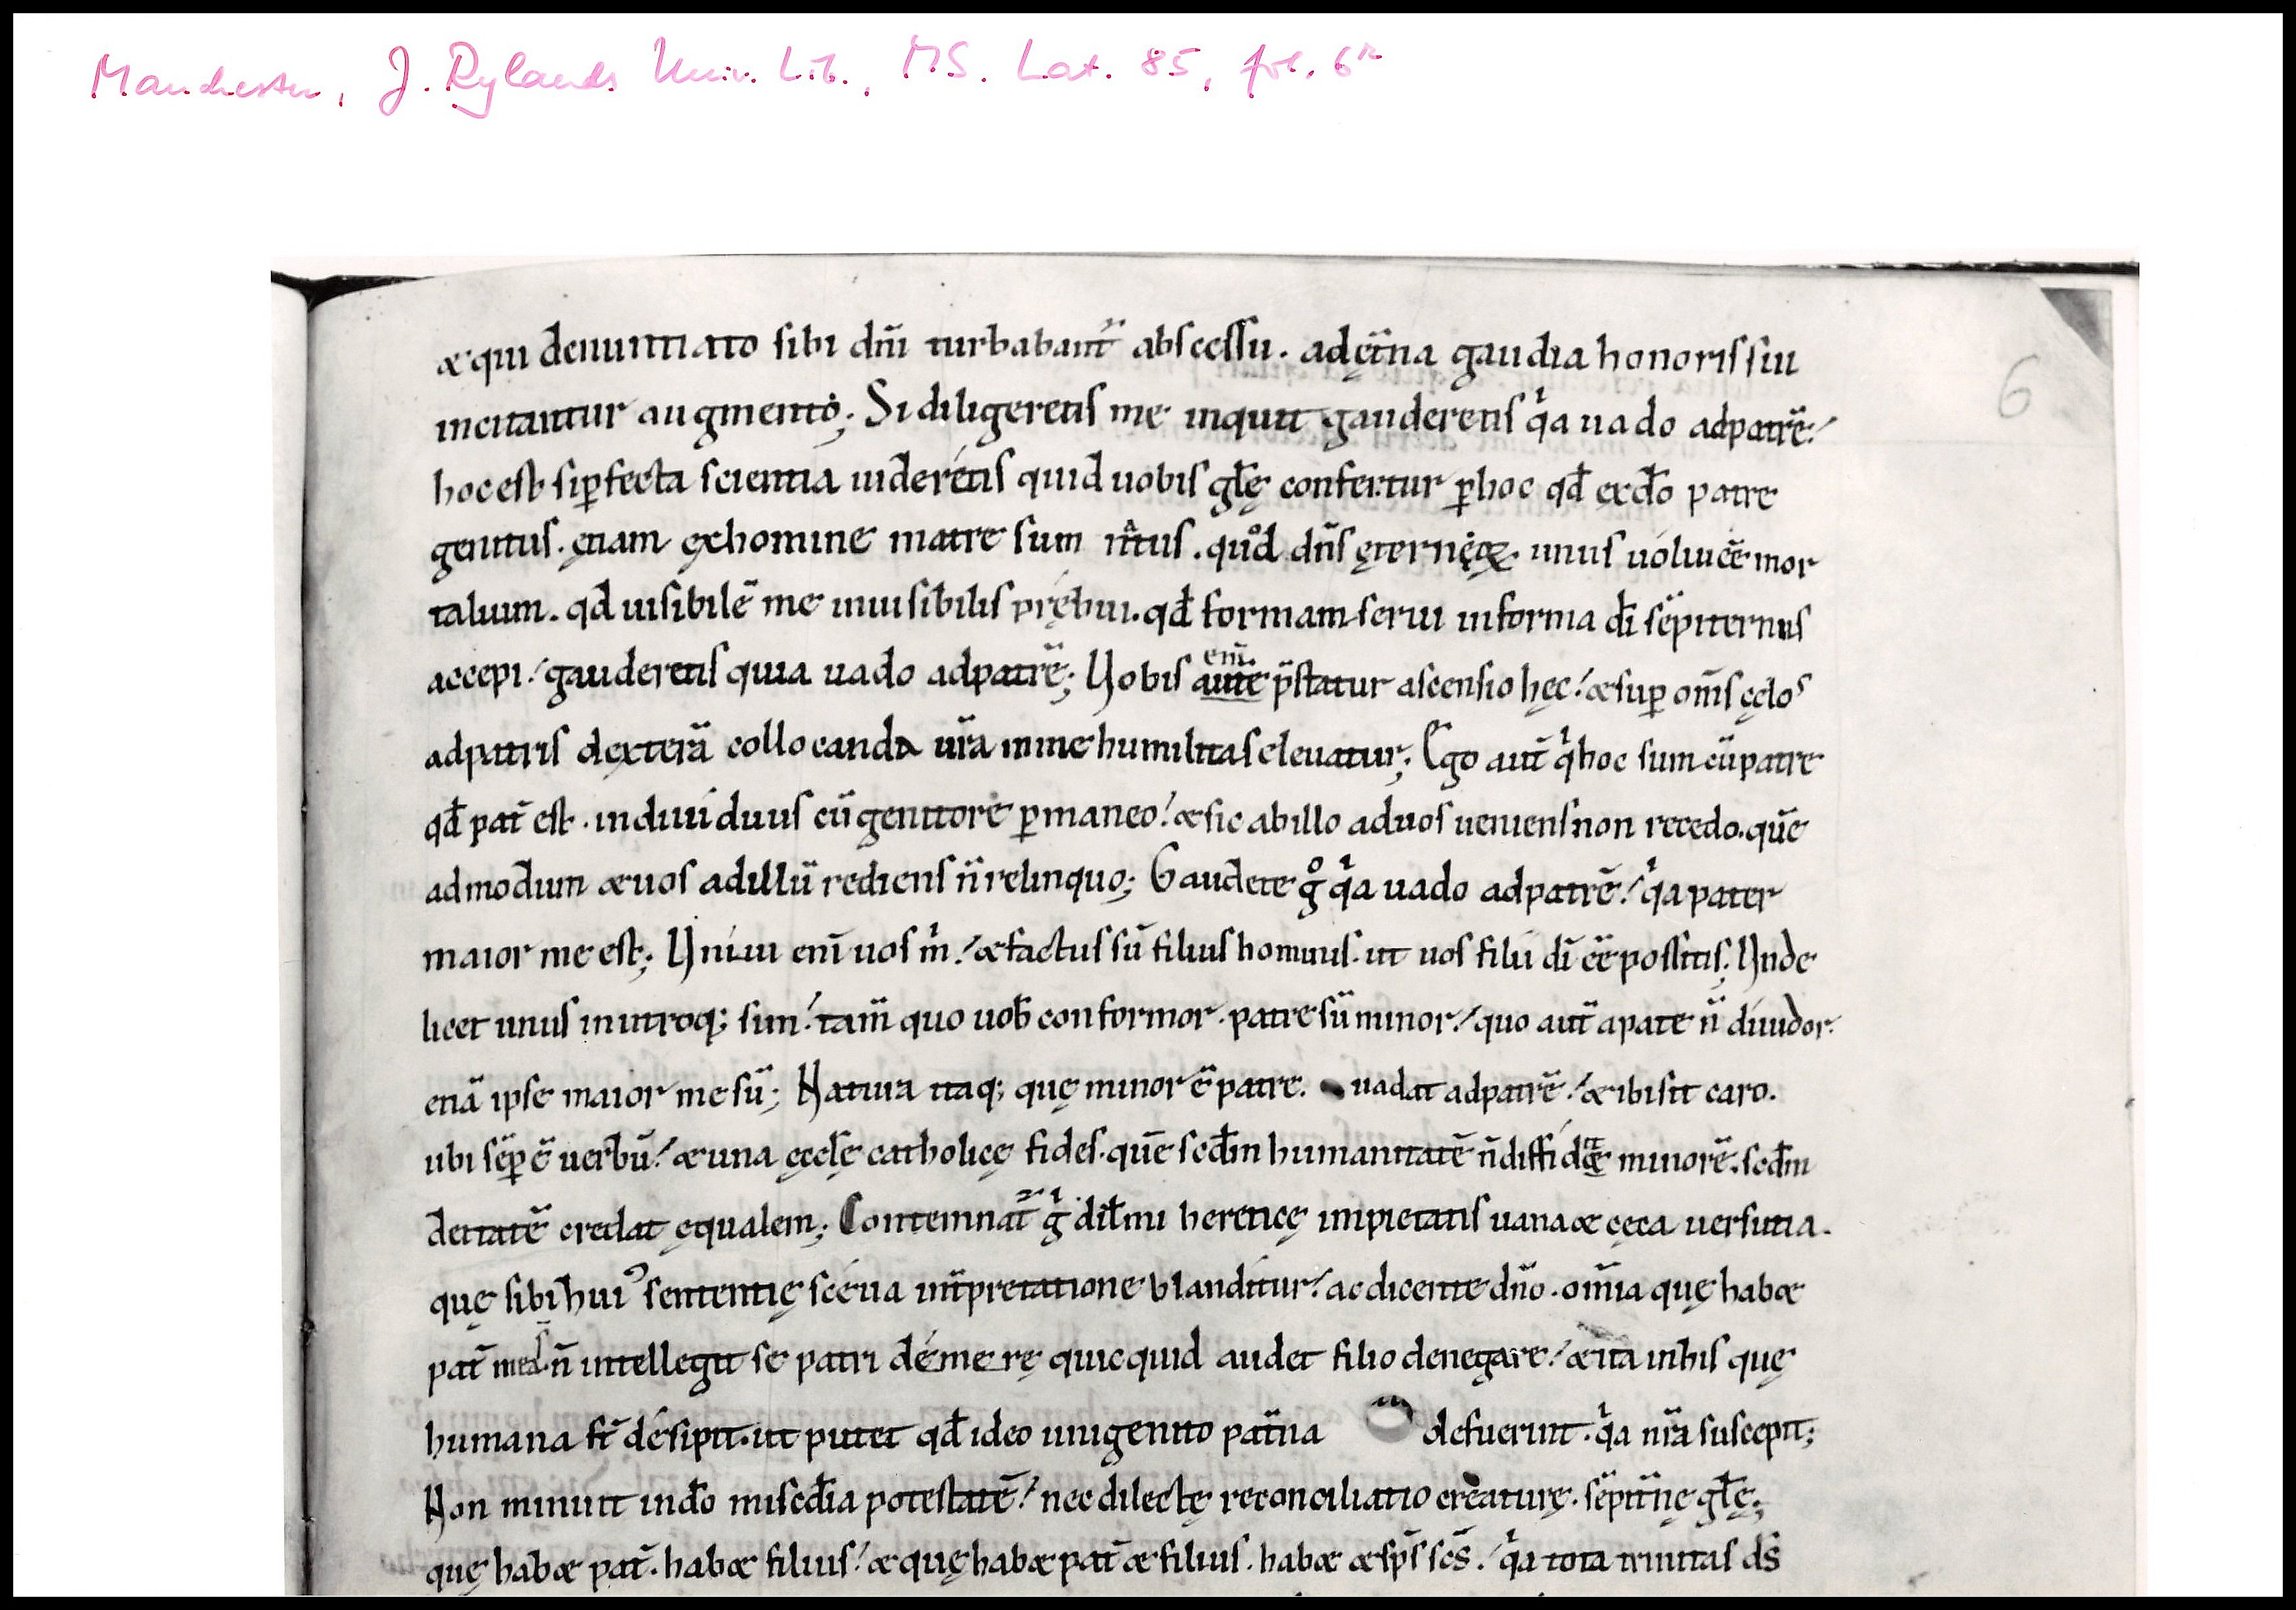 Manchester, J. Rylands Univ. Lib., MS. Lat. 85, fol. 6r
6
& qui denuntiato sibi dñi turbabant᷑ abscessu. ad ęt̄na gaudia honoris sui
incitantur augmento; Si diligeretis me inquit gauderetis qͥa uado ad patrē!
hoc est si ꝑfecta scientia uideretis quid uobis gl̄ę confertur ꝑ hoc qđ ex đo patre
genitus. etiam ex homine matre sum nãtus. quod dñs ęternęꝝ unus uolui ēē mor
talium. qđ uisibilē me inuisibilis prębui. qđ formam serui in forma di sēpiternus
accepi! gauderetis quia uado ad patrē; Uobis autē em̄ p̄statur ascensio hęc! & suꝑ om̄s cęlos
ad patris dexterā collocanda ur̄a in me humilitas eleuatur; Ego aut̄ qͥ hoc sum cū patre
qđ pat̄ est. indiuiduus cū genitore ꝑmaneo! & sic ab illo ad uos ueniens non recedo. quē
admodum & uos ad illū rediens n̄ relinquo; Gaudete gͦ qͥa uado ad patrē! qͥa pater
maior me est; Uniui eni uos mͥ! & factus sū filius hominis. ut uos filii di ēē possitis; Unde
licet unus in utroq; sim! tam̄ quo uob̄ conformor. patre sū minor! quo aut̄ a patre n̄ diuidor.
etiā ipse maior me sū; Natura itaq; quę minor ē patre. uadat ad patrē! & ibi sit caro.
ubi sēꝑ ē uerbū! & una ęccłę catholicę fides. quē scđm humanitatē n̄ diffid& minorē. scđm
deitatē credat ęqualem; Contemnat᷑ gͥ dil̄mi hereticę impietatis uana & cęca uersutia.
quę sibi huiꝰ sententię scęua int̄pretatione blanditur! ac dicente dño. om̄ia quę hab&
pat̄ mea sͭ. n̄ intellegit se patri demere quicquid audet filio denegare! & ita in his quę
humana st̄ desipit. ut putet qđ ideo unigenito pat̄na defuerint. qͥa nr̄a suscepit;
Non minuit in đo misc̄đia potestatē! nec dilectę reconciliatio creaturę. sēpit̄nę gl̄ę;
quę hab& pat̄. hab& filius! & quę hab& pat̄ & filius. hab& & sp̄s sc̄s. qͥa tota trinitas dś